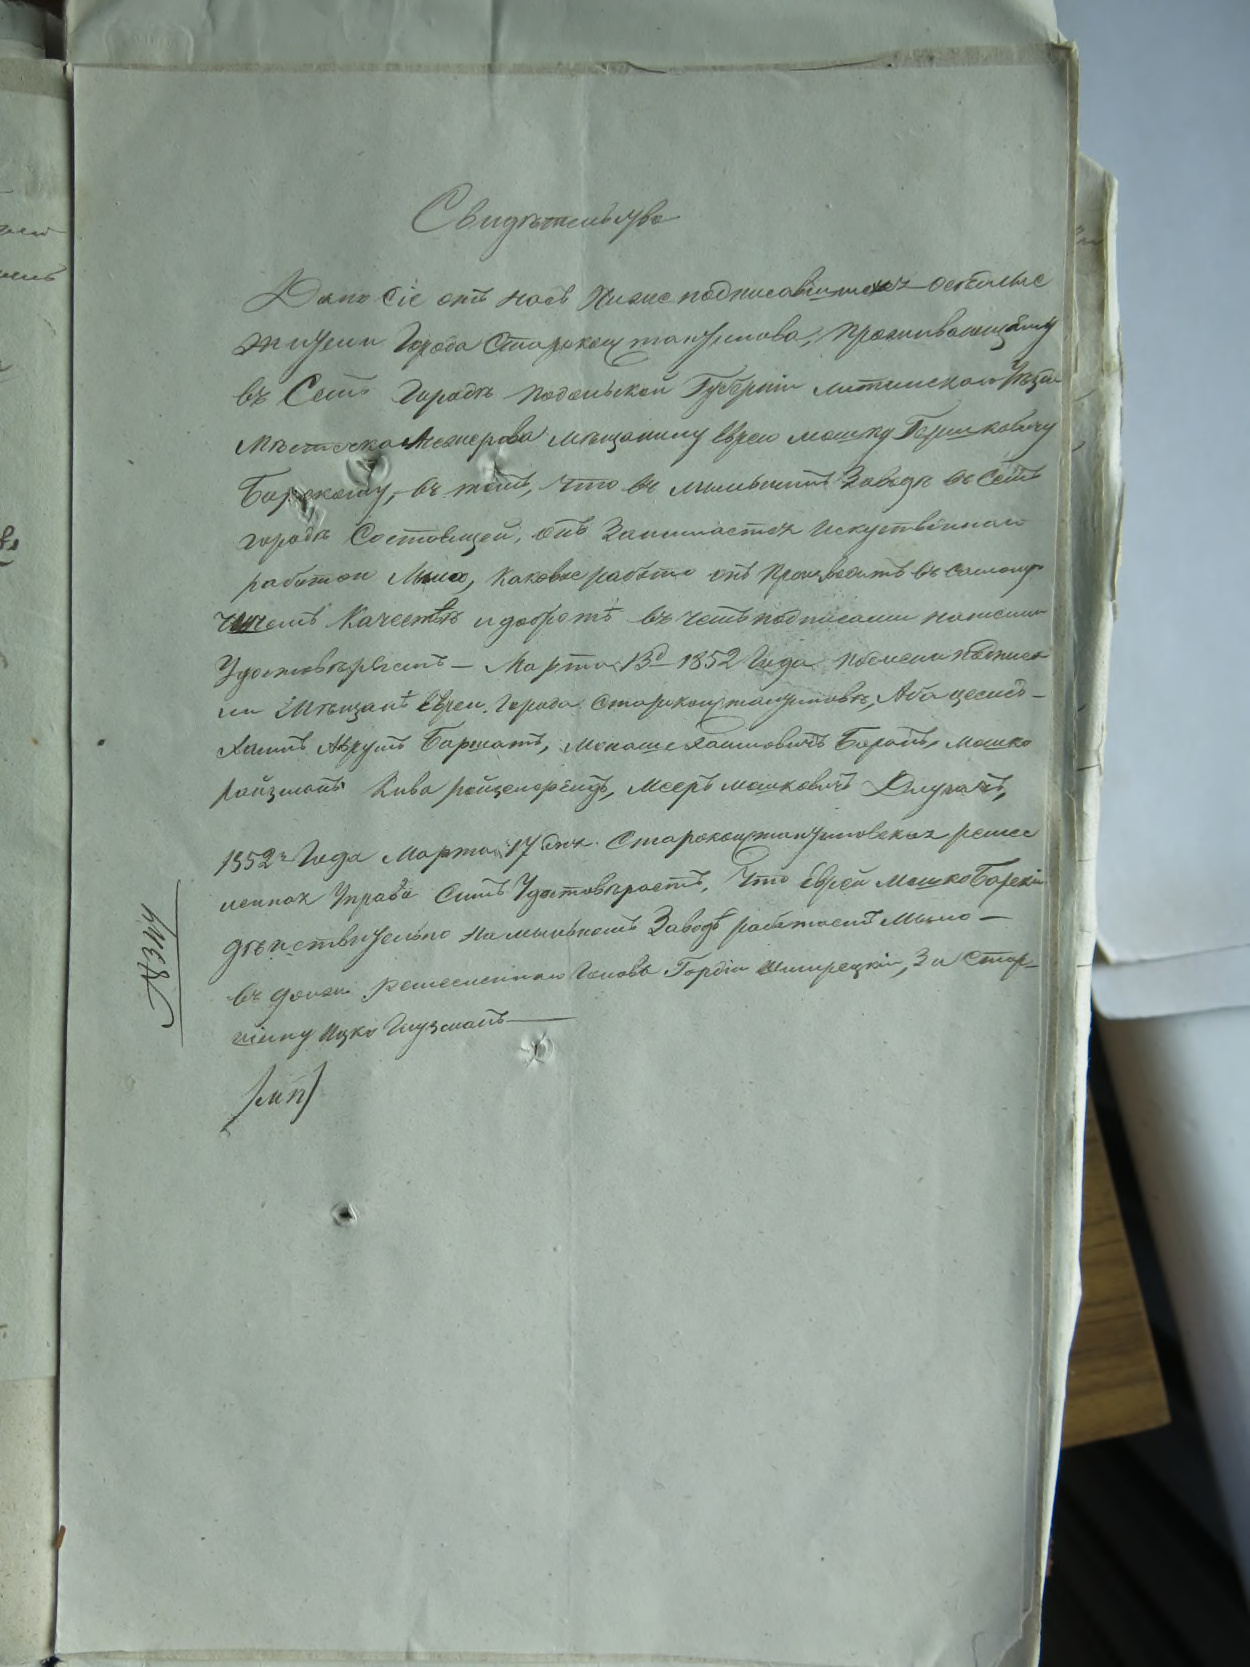 Свидѣтельство
Дано Сіе отъ насъ Ниже подписавшихся осѣдлыхъ
жителей Города Староконстантинова, проживающему
въ Семъ Городѣ Подольской Губерніи Литинскаго Уѣзда
Мѣстечка мѣщанину Еврею Мошку Гершковичу
Барскому, въ томъ, что въ мыльномъ Заводѣ въ Семъ
городѣ Состоящей, онъ Занимается Искуственною
работою Мыла, каковые работы онъ производитъ въ самомъ
Качествѣ и добротѣ въ чемъ подписами нашими
Удостовѣряемъ — Марта 13д 1852 Года
Мѣщане Евреи Города Староконстантинова,
Хаимъ Аврумъ Монаше Хаимовичъ Мошко
Ройзманъ Кива Мееръ Мошковичъ
1852 Года Марта 17 дня. Староконстантиновская ремес
ленная Управа Симъ Удостовѣряетъ, Что Еврей Мошко Барскій
дѣйствительно на мыльномъ Заводѣ работаетъ Мыло —
въ должн. Ремесленнаго Головы Гордій За Стар-
шину Ицко Глузманъ
/мп/
№ 344